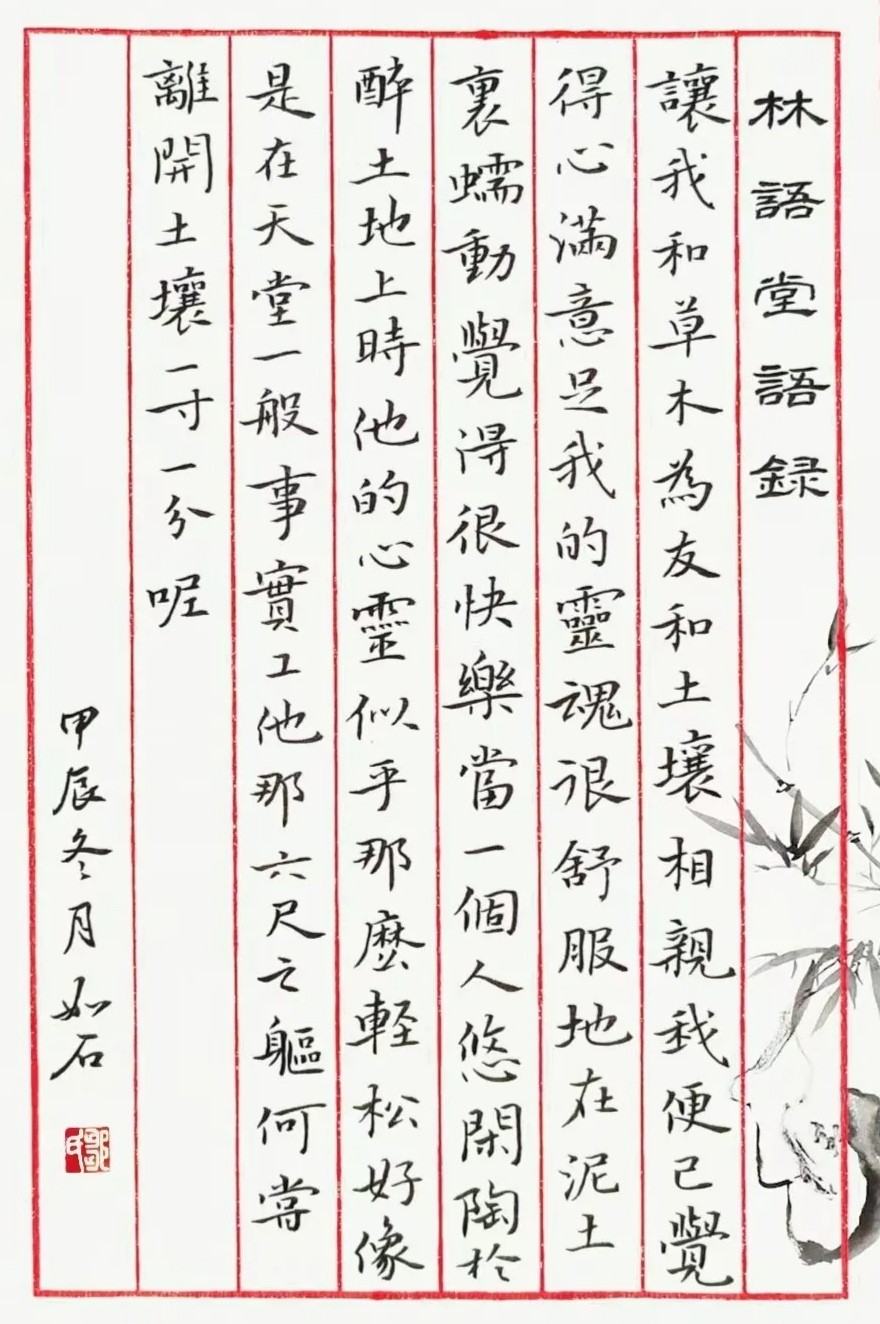 林語堂語録
讓我和草木為友和土壤相親我便已覺
得心滿意足我的靈魂很舒服地在泥土
裏蠕動覺得很快樂當一個人悠閑陶於
醉土地上時他的心靈似乎那麼輕松好像
是在天堂一般事實上他那六尺之軀何嘗
離開土壤一寸一分呢
甲辰冬月如石
鄒氏